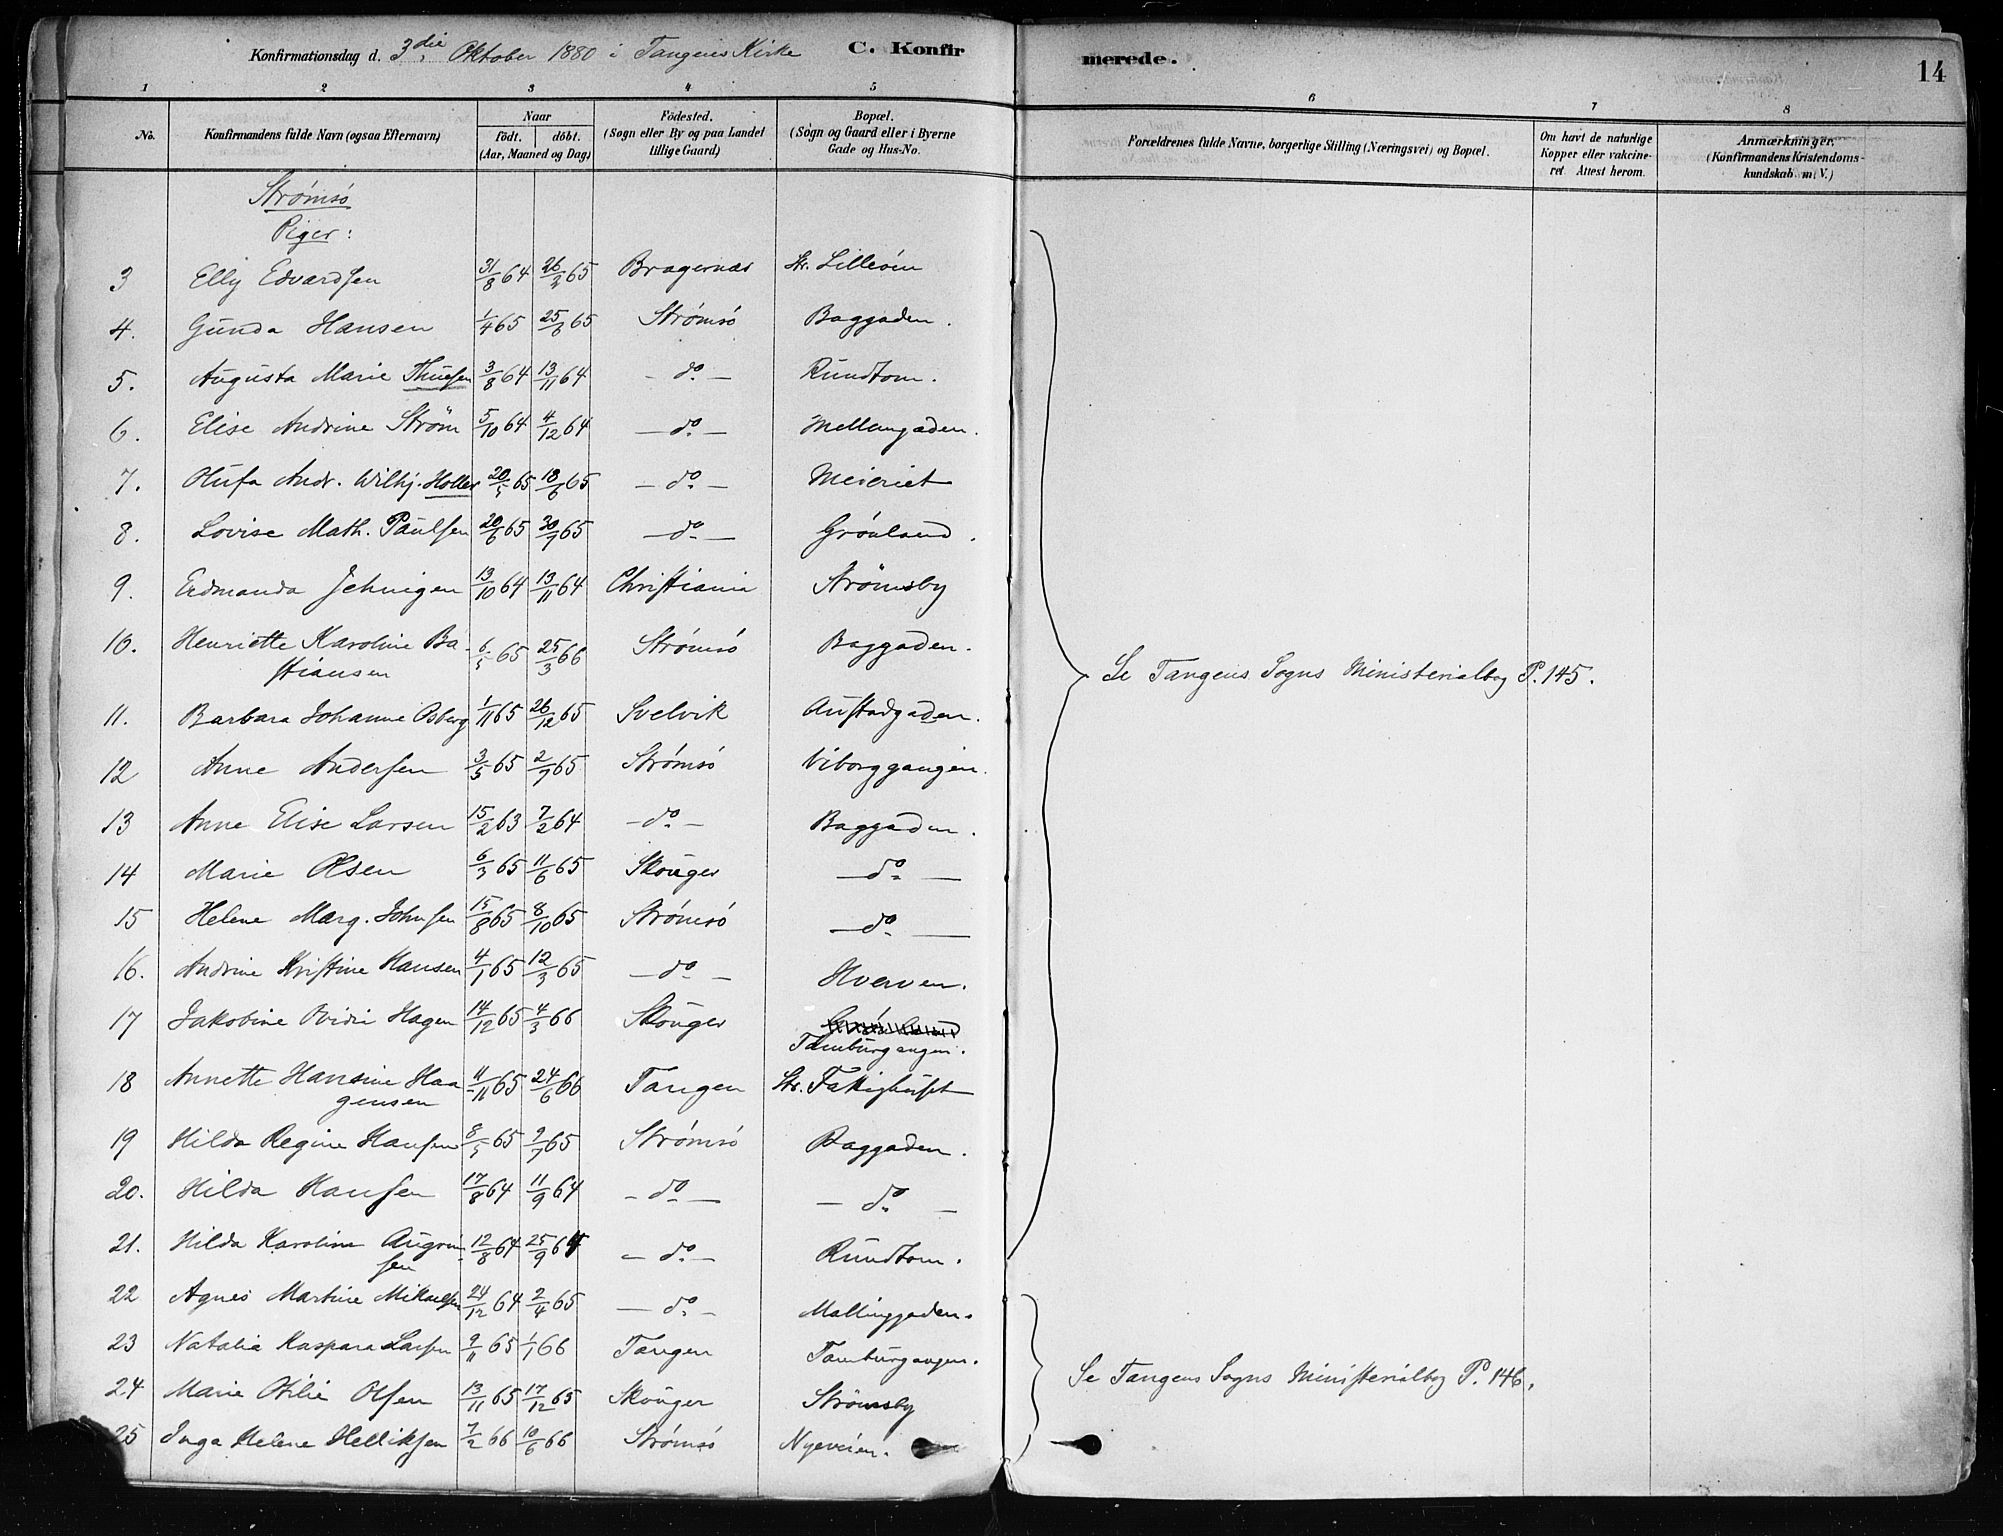 Konfirmationsdag d. 3die Oktober 1880 i Tangens Kirke C. Konfirmerede. 14
1 2 3 4 5 6 7 8
No. Konfirmandens fulde Navn (ogsaa Efternavn) Naar födt. döbt. (Aar, Maaned og Dag) Födested. (Sogn eller By og paa Landet tillige Gaard) Bopæl. (Sogn og Gaard eller i Byerne Gade og Hus-No. Forældrenes fulde Navne, borgerlige Stilling (Næringsvei) og Bopæl. Om havt de naturlige Kopper eller vakcineret. Attest herom. Anmærkninger, (Konfirmandens Kristendomskundskab m. V.)
Strømsö
Piger:
3 Elly Edvardsen 31/8 64 26/2 65 Bragernæs Str. Lilleöen
4. Gunda Hansen 1/4 65 25/6 65 Strømsö Baggaden.
5. Augusta Marie Thuesen 3/8 64 13/11 64 – do – Rundtom.
6. Elise Andrine Strøm 5/10 64 4/12 64 – do – Mellemgaden.
7. Olufa Andr. Wilhj. Holler 20/5 65 18/6 65 – do – Meieriet
8. Lovise Math. Paulsen 20/6 65 30/7 65 – do – Grönland.
9. Erdmanda Jehnigen 13/10 64 13/11 64 Christiania Strömsby
10. Henriette Karoline Bastiansen 6/5 65 25/3 66 Strømsö Baggaden.
11. Barbara Johanne Osberg 1/11 65 26/12 65 Svelvik Austadgaden.
12 Anne Andersen 3/5 65 2/7 65 Strømsö Viborggangen.
13 Anne Elise Larsen 15/2 63 7/2 64 – do – Baggaden.
14 Marie Olsen 6/3 65 11/6 65 Skouger – do –
15 Helene Marg. Johnsen 15/8 65 8/10 65 Strømsö – do –
16. Andrine Kristine Hansen 4/1 65 12/3 65 – do – Hverven.
17 Jakobine Ovidie Hagen 14/12 65 4/3 66 Skouger Tamburgangen.
18 Annette Hansine Haagensen 11/11 65 24/6 66 Tangen Str. Fattighuset
19 Hilda Regine Hansen 8/5 65 2/7 65 Strømsö Baggaden.
20. Hilda Hansen 17/8 64 11/9 64 – do – – do –
21. Hilda Karoline 12/8 64 25/9 64 – do – Rundtom.
22 Agnes Martine Mikaelsen 24/12 64 2/4 65 – do – Mallinggaden.
23 Natalia Kaspara Larsen 9/11 65 1/1 66 Tangen Tamburgangen.
24 Marie Otilie Olsen 13/11 65 17/12 65 Skouger Strömsby
25 Inga Helene Helliksen 7/2 66 10/6 66 Strømsö Nyeveien.
Se Tangens Sogns Ministerialbog P. 145.
Se Tangens Sogns Ministerialbog P. 146.